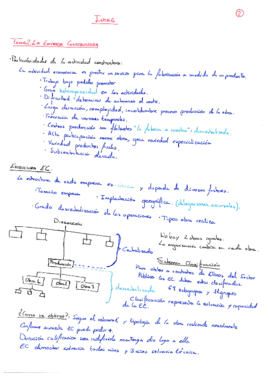 ②
TEMA6
TEMA6: LA EMPRESA CONSTRUCTORA
· Particularidades de la actividad constructora:
La actividad económica es prestar un servicio para la fabricación a medida de un producto.
· Trabajo bajo pedido promotor
· Gran heterogeneidad en las actividades.
· Dificultad determinar de antemano el coste.
· Larga duración, complejidad, incertidumbre proceso producción de la obra.
· Previsión de recursos temporales.
· Centros producción son flotantes "la fábrica a cuestas" descentralizada.
· Alta participación mano obra, gran variedad especialización
· Variedad productos finales.
· Subcontratación elevada.
ESTRUCTURA EC
La estructura de cada empresa es única y depende de diversos factores.
· Tamaño empresa
· Implantación geográfica (delegaciones necesarias).
· Grado descentralización de las operaciones
· Tipos obra realiza.
Dirección
No hay 2 obras iguales.
La organización cambia en cada obra.
Centralizado
Producción
Obra 1
Obra 2
Obra 3
descentralizado
Sistema Clasificación
Para optar a contratos de Obras del Sector
Público las EC deben estar clasificadas.
61 subgrupos y 11 grupos
Clasificación representa la solvencia y capacidad
de la EC.
¿Cómo se obtiene?: Según el volumen y tipología de la obra realizada anualmente
Conforme aumenta EC puede pedir ↑.
Duración calificación
EC demostrar solvencia todos años y 3 años solvencia técnica.